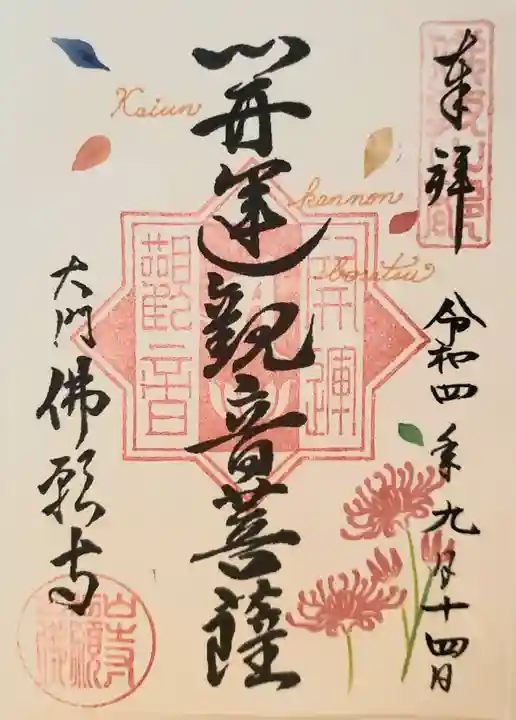 奉拝
令和四年九月十四日
開運観音菩薩
Kaiun
kannon
Bosatsu
開運
観音
大門 佛願寺